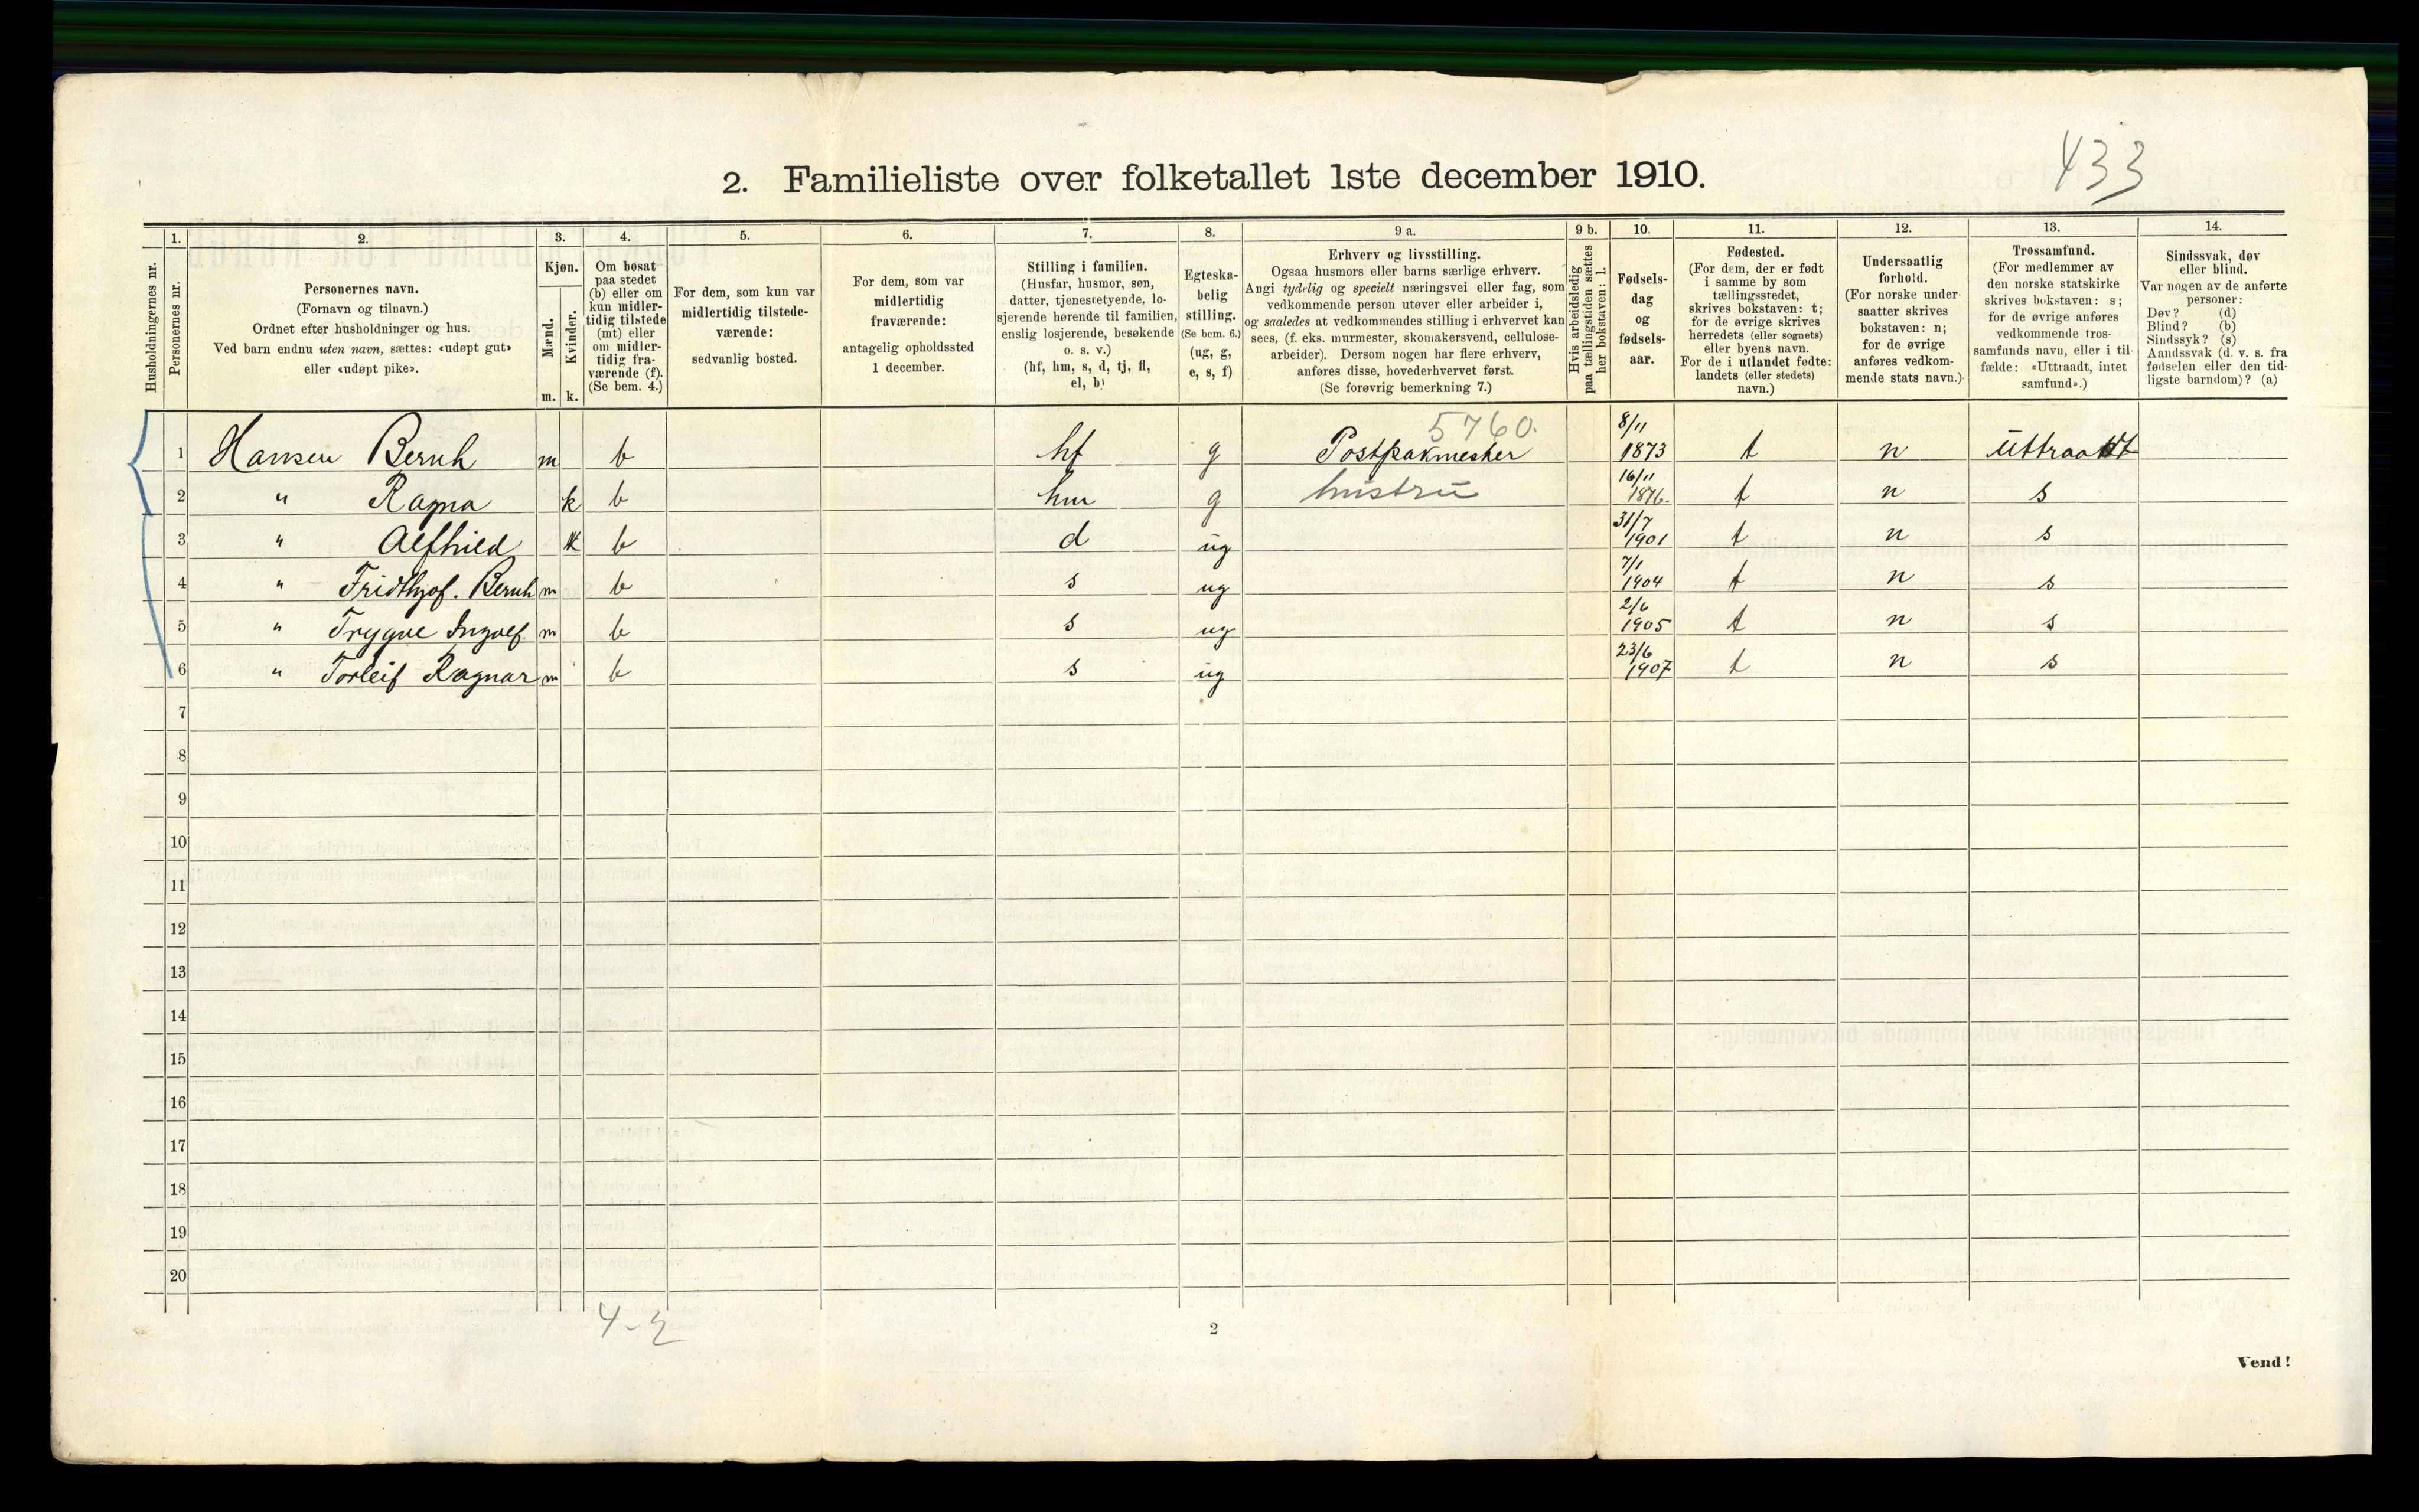 433
2. Familieliste over folketallet 1ste december 1910.
Husholdningernes nr.
1.
Personernes nr.
2.
Personernes navn.
(Fornavn og tilnavn.)
Ordnet efter husholdninger og hus.
Ved barn endnu uten navn, sættes: «udøpt gut»
eller «udøpt pike».
3.
Kjøn.
Mænd.
Kvinder.
m. k.
4.
Om bosat
paa stedet
(b) eller om
kun midler-
tidig tilstede
(mt) eller
om midler-
tidig fra-
værende (f).
(Se bem. 4.)
5.
For dem, som kun var
midlertidig tilstede-
værende:
sedvanlig bosted.
6.
For dem, som var
midlertidig
fraværende:
antagelig opholdssted
1 december.
7.
Stilling i familien.
(Husfar, husmor, søn,
datter, tjenestetyende, lo-
sjerende hørende til familien,
enslig losjerende, besøkende
o. s. v.)
(hf, hm, s, d, tj, fl,
el, b)
8.
Egteska-
belig
stilling.
(Se bem. 6.)
(ug, g,
e, s, f)
9 a.
Erhverv og livsstilling.
Ogsaa husmors eller barns særlige erhverv.
Angi tydelig og specielt næringsvei eller fag, som
vedkommende person utøver eller arbeider i,
og saaledes at vedkommendes stilling i erhvervet kan
sees, (f. eks. murmester, skomakersvend, cellulose-
arbeider). Dersom nogen har flere erhverv,
anføres disse, hovederhvervet først.
(Se forøvrig bemerkning 7.)
9 b.
Hvis arbeidsledig
paa tællingstiden sættes
her bokstaven: l.
10.
Fødsels-
dag
og
fødsels-
aar.
11.
Fødested.
(For dem, der er født
i samme by som
tællingsstedet,
skrives bokstaven: t;
for de øvrige skrives
herredets (eller sognets)
eller byens navn.
For de i utlandet fødte:
landets (eller stedets)
navn.)
12.
Undersaatlig
forhold.
(For norske under-
saatter skrives
bokstaven: n;
for de øvrige
anføres vedkom-
mende stats navn.)
13.
Trossamfund.
(For medlemmer av
den norske statskirke
skrives bokstaven: s;
for de øvrige anføres
vedkommende tros-
samfunds navn, eller i til-
fælde: «Uttraadt, intet
samfund».)
14.
Sindssvak, døv
eller blind.
Var nogen av de anførte
personer:
Døv? (d)
Blind? (b)
Sindssyk? (s)
Aandssvak (d. v. s. fra
fødselen eller den tid-
ligste barndom)? (a)
5760.
1 Hansen Bernh m b hf g Postpakmester 8/11 1873 t n Uttraadt
2 " Ragna k b hm g hustru 16/11 1876. t n s
3 " Alfhild k b d ug 31/7 1901 t n s
4 " Fridthjof. Bernh m b s ug 7/1 1904 t n s
5 " Trygve Ingolf m b s ug 2/6 1905 t n s
6 " Torleif Ragnar m b s ug 23/6 1907 t n s
7
8
9
10
11
12
13
14
15
16
17
18
19
20
4-2
2
Vend!